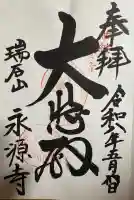 奉拝
令和六年五月四日
大悲殿
瑞石山
永源寺